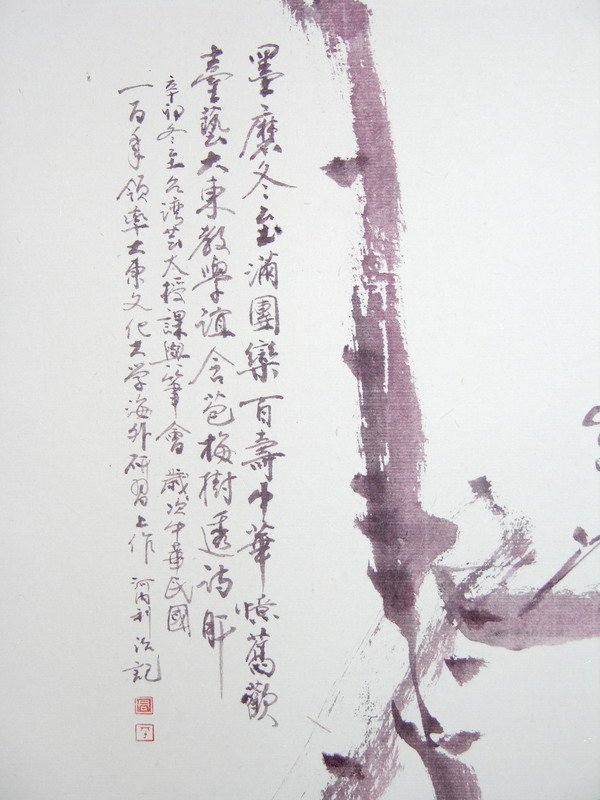 墨磨冬至滿團欒百壽中華憭舊歡
臺藝大東教學誼含苞梅樹透詩肝
辛卯冬至台湾芸大授課與筆會 歲次中華民國
一百年領率大東文化大学海外研習上作 河内利治記